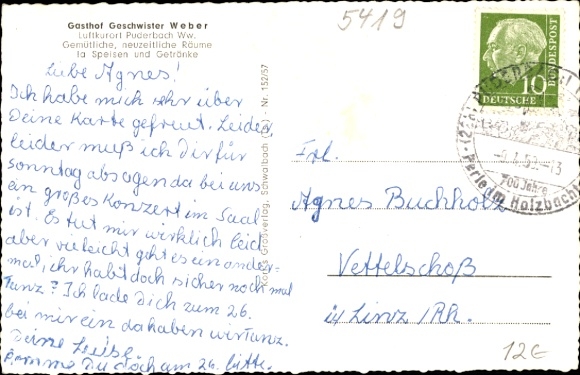 5419
Gasthof Geschwister Weber
Luftkurort Puderbach Ww.
Gemütliche, neuzeitliche Räume
Ia Speisen und Getränke
Liebe Agnes!
Ich habe mich sehr über
Deine Karte gefreut. Leider,
leider muß ich Dir für
Sonntag absagen da bei uns
ein großes Konzert im Saal
ist. Es tut mir wirklich leid
aber vielleicht geht es ein ander-
mal, ihr habt doch sicher noch mal
Tanz? Ich lade Dich zum 26.
bei mir ein da haben wir Tanz.
Deine Luise
Komme Du doch am 26. bitte.
Verlag, Schwalbach Nr. 152/57
10
DEUTSCHE
BUNDESPOST
700 Jahre
Perle im Holzbachtal
Frl.
Agnes Buchholz
Vettelschoß
ü/ Linz /Rh.
12€